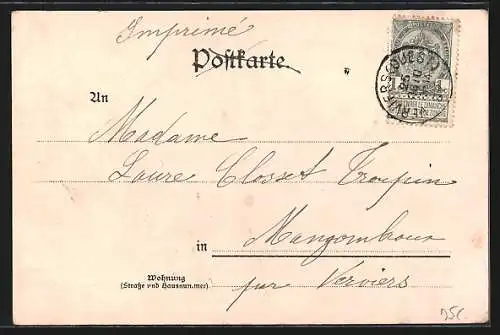 Imprimé
Postkarte.
An
Madame
Laure Closset Troupin
in Mangombroux
Wohnung
(Straße und Hausnummer)
par Verviers
35C